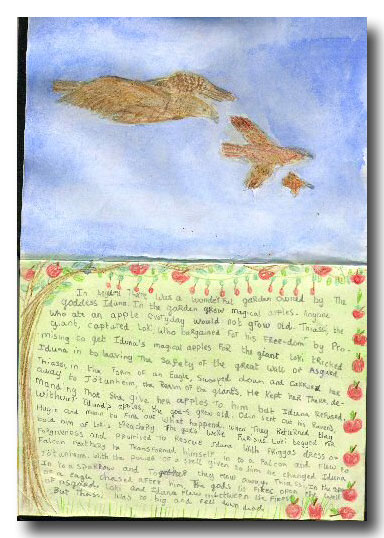 In there was a wonderful garden owned by The
goddess Iduna. In the garden grew magical apples. Anyone
who ate an apple everyday would not grow old. Thiassi, the
giant, captured Loki. Who bargained for his Freedom by Pro-
mising to get Iduna's magical apples for the giant. Loki tricked
Iduna in to leaving The safety of the great Wall of Asgard
Thiassi, in the form of an Eagle, swooped down and carried
away to Jotunheim, the Realm of the giants. He kept her There, de-
Manding that She give her apples to him but Iduna refused.
Without Iduna's apples, the gods grew old. Odin sent out his Ravens
Hugin and to find out what happend. when They Returned they
told him of Loki's treachery. The gods were Furious. Loki begged for
forgiveness and promised to Rescue Iduna. with Friggas dress of
Falcon feathers he Transformed himself in to a Falcon and Flew to
Jotunheim. with the power of a spell given to him he changed Iduna
In to a Sparrow and They flew away. Thiassi, In the form
an Eagle chased after him. The gods lit fires open the Wall
of Asgard. Loki and Iduna flew the fires
But Thiassi was to big and fell down dead.